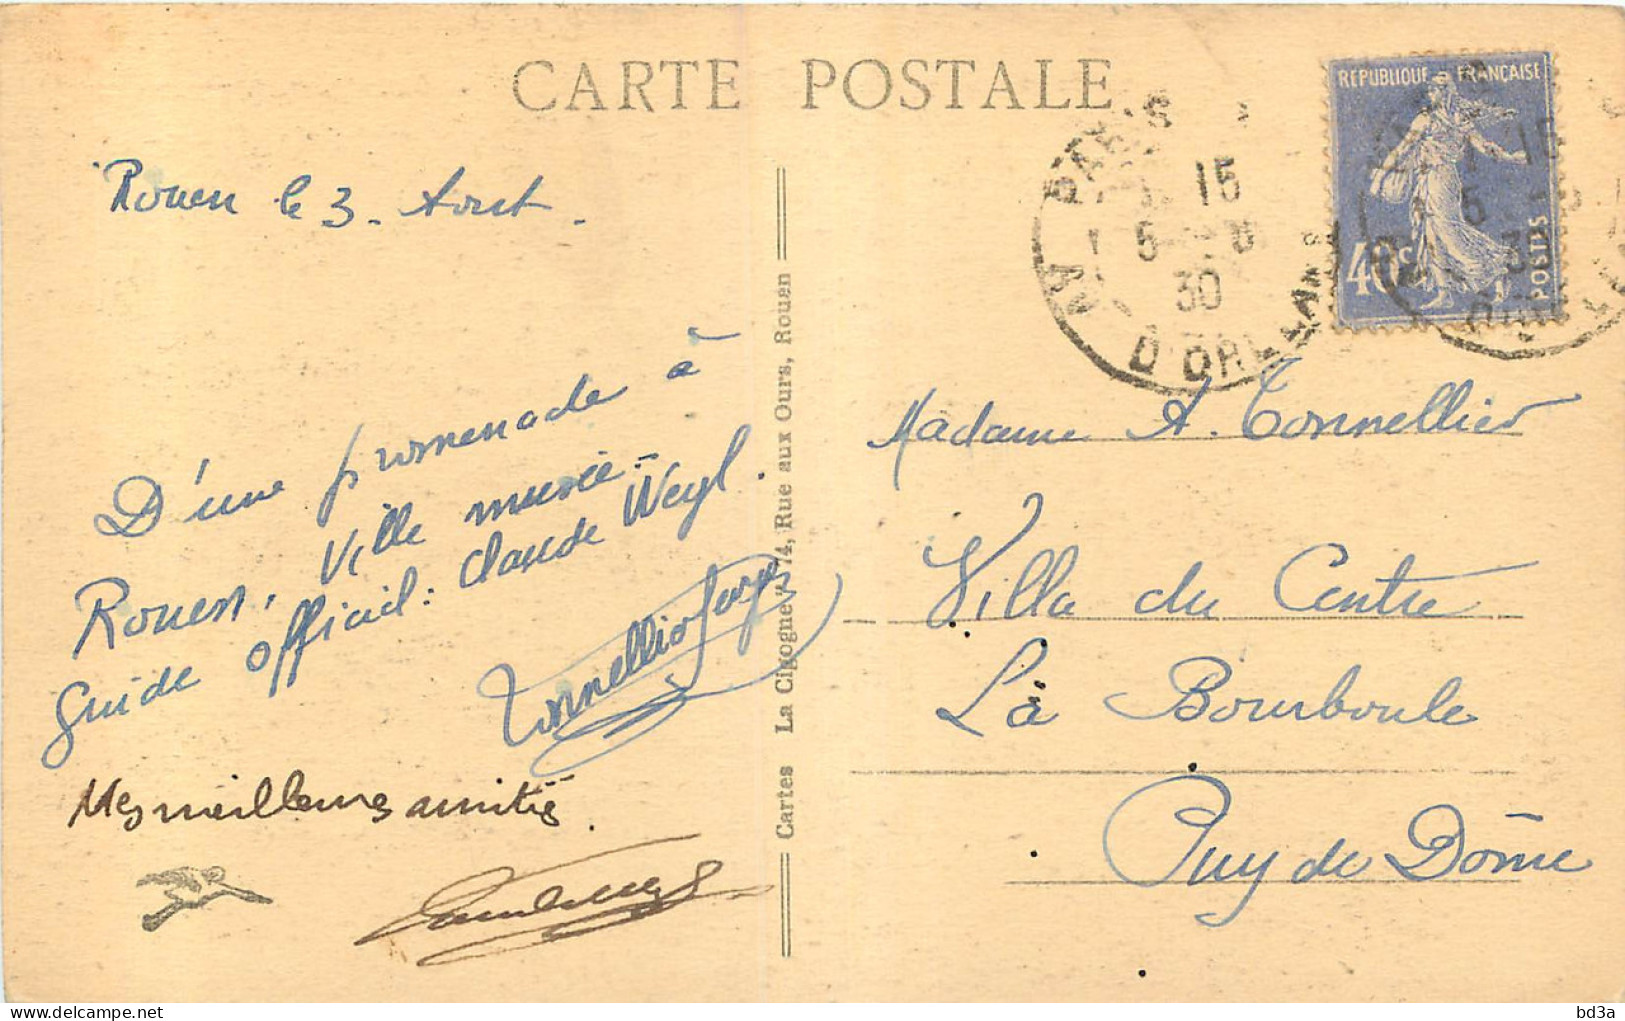 CARTE POSTALE
Rouen le 3. Aout.
D'une promenade à
Rouen. Ville musée.
Guide officiel: Claude Weyl.
Mes meilleures amitiés.
Cartes La Cigogne 74, Rue aux Ours, Rouen
REPUBLIQUE FRANÇAISE
40c
POSTES
PARIS
15
5
30
D'ORLEANS
Madame A. Tonnellier
Villa du Centre
La Bourboule
Puy de Dôme
bd3a